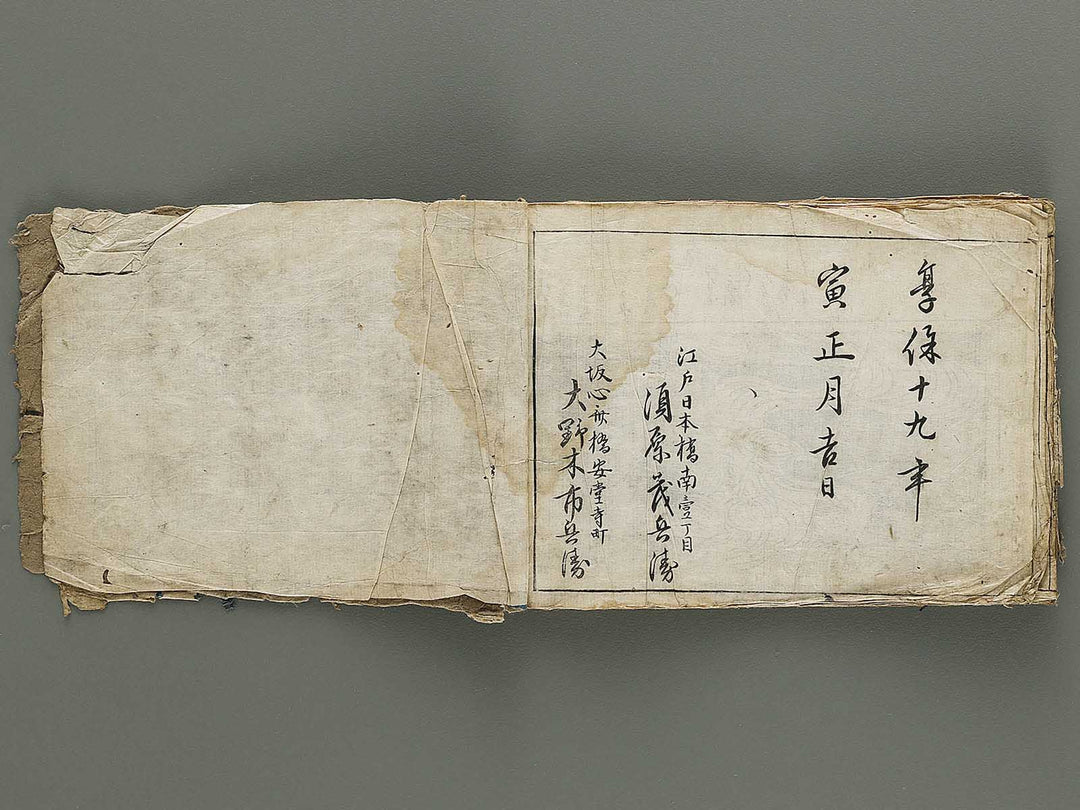 享保十九年
寅正月吉日
江戸日本橋南壹丁目
須原茂兵衛
大坂心斎橋安堂寺町
大野木市兵衛